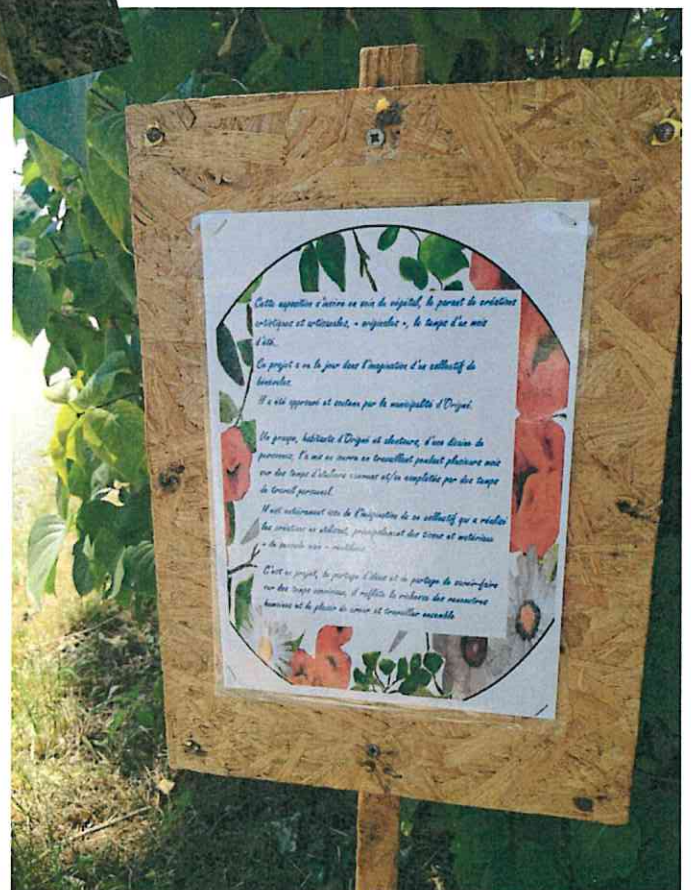 Cette exposition s'insère au sein du végétal, le permet de créations
artistiques et artisanales, « originales », le temps d'un mois
d'été.
Ce projet a vu le jour dans l'imagination d'un collectif de
bénévoles.
Il a été approuvé et soutenu par la municipalité d'Origné.
Un groupe, habitants d'Origné et alentours, d'une dizaine de
personnes, l'a mis en œuvre en travaillant pendant plusieurs mois
sur des temps d'ateliers communs et/ou complétés par des temps
de travail personnel.
Il est entièrement issu de l'imagination de ce collectif qui a réalisé
les créations en utilisant, principalement des tissus et matériaux
« de seconde main »
C'est un projet, de partage d'idées et de partage de savoir-faire
sur des temps conviviaux, il reflète la richesse des rencontres
humaines et le plaisir de créer et travailler ensemble